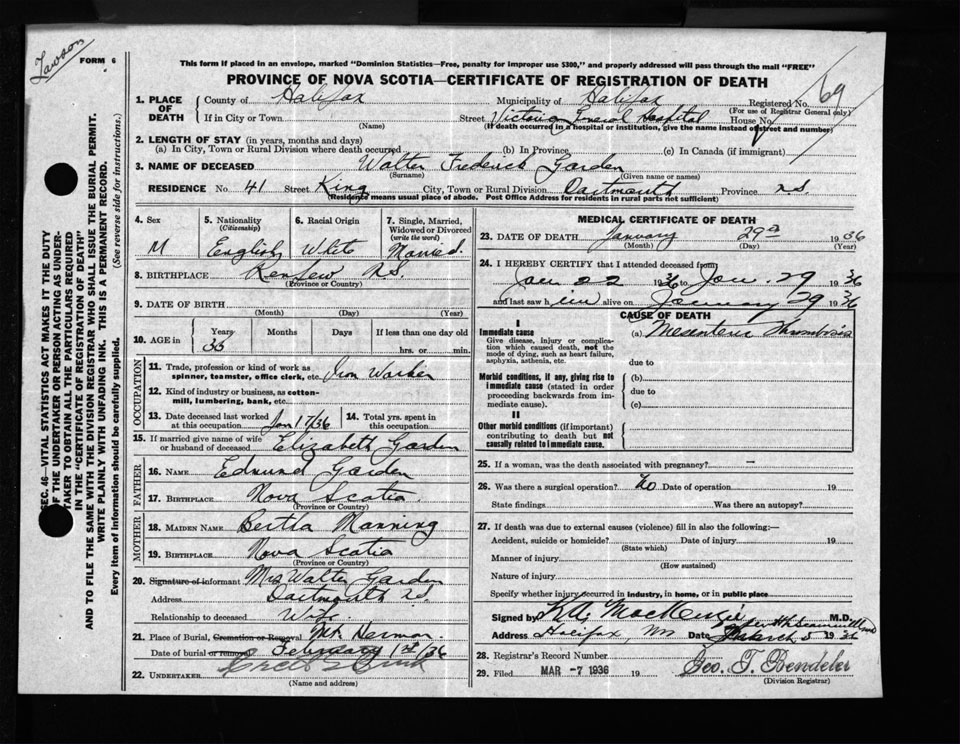 Lawson
FORM 6
This form if placed in an envelope, marked "Dominion Statistics—Free, penalty for improper use $300," and properly addressed will pass through the mail "FREE"
PROVINCE OF NOVA SCOTIA—CERTIFICATE OF REGISTRATION OF DEATH
69
1. PLACE OF DEATH
County of Halifax Municipality of Halifax Registered No.
(For use of Registrar General only)
If in City or Town Street Victoria General Hospital House No.
(Name) (If death occurred in a hospital or institution, give the name instead of street and number)
2. LENGTH OF STAY (in years, months and days)
(a) In City, Town or Rural Division where death occurred (b) In Province (c) In Canada (if immigrant)
3. NAME OF DECEASED Walter Frederick Garden
(Surname) (Given name or names)
RESIDENCE No. 41 Street King City, Town or Rural Division Dartmouth Province N.S.
(Residence means usual place of abode. Post Office Address for residents in rural parts not sufficient)
4. Sex M
5. Nationality (Citizenship) English
6. Racial Origin White
7. Single, Married, Widowed or Divorced (write the word) Married.
8. BIRTHPLACE Renfrew N.S.
(Province or Country)
9. DATE OF BIRTH
(Month) (Day) (Year)
10. AGE in Years Months Days If less than one day old
36 hrs. or min.
OCCUPATION
11. Trade, profession or kind of work as spinner, teamster, office clerk, etc. Iron Worker
12. Kind of industry or business, as cotton-mill, lumbering, bank, etc.
13. Date deceased last worked at this occupation Jan 17/36
14. Total yrs. spent in this occupation
15. If married give name of wife or husband of deceased Elizabeth Garden
FATHER
16. NAME Edmund Garden
17. BIRTHPLACE Nova Scotia
(Province or Country)
MOTHER
18. MAIDEN NAME Bertha Manning
19. BIRTHPLACE Nova Scotia
(Province or Country)
20. Signature of informant Mrs Walter Garden
Address Dartmouth N.S.
Relationship to deceased Wife
21. Place of Burial, Cremation or Removal Mt. Hermon
Date of burial or removal February 1st/36
22. UNDERTAKER
(Name and address)
MEDICAL CERTIFICATE OF DEATH
23. DATE OF DEATH January 29 1936
(Month) (Day) (Year)
24. I HEREBY CERTIFY that I attended deceased from
Jan 22 1936 to Jan. 29 36
and last saw h im alive on January 29 36
CAUSE OF DEATH
Immediate cause (a) Mesenteric Thrombosis
Give disease, injury or complication which caused death, not the mode of dying, such as heart failure, asphyxia, asthenia, etc.
due to
Morbid conditions, if any, giving rise to immediate cause (stated in order proceeding backwards from immediate cause).
(b)
due to
(c)
II
Other morbid conditions (if important) contributing to death but not causally related to immediate cause.
25. If a woman, was the death associated with pregnancy? —
26. Was there a surgical operation? No Date of operation 19
State findings Was there an autopsy?
27. If death was due to external causes (violence) fill in also the following:—
Accident, suicide or homicide? Date of injury 19
(State which)
Manner of injury
(How sustained)
Nature of injury
Specify whether injury occurred in industry, in home, or in public place
Signed by K.A. MacKenzie M.D.
Address Halifax NS Date March 5 1936
28. Registrar's Record Number
29. Filed MAR -7 1936 19 Geo. T. Bendeler
(Division Registrar)
SEC. 46—VITAL STATISTICS ACT MAKES IT THE DUTY
OF THE UNDERTAKER OR PERSON ACTING AS UNDER-
TAKER TO OBTAIN ALL THE PARTICULARS REQUIRED
IN THE "CERTIFICATE OF REGISTRATION OF DEATH"
AND TO FILE THE SAME WITH THE DIVISION REGISTRAR WHO SHALL ISSUE THE BURIAL PERMIT.
WRITE PLAINLY WITH UNFADING INK. THIS IS A PERMANENT RECORD.
Every item of information should be carefully supplied. (See reverse side for instructions.)